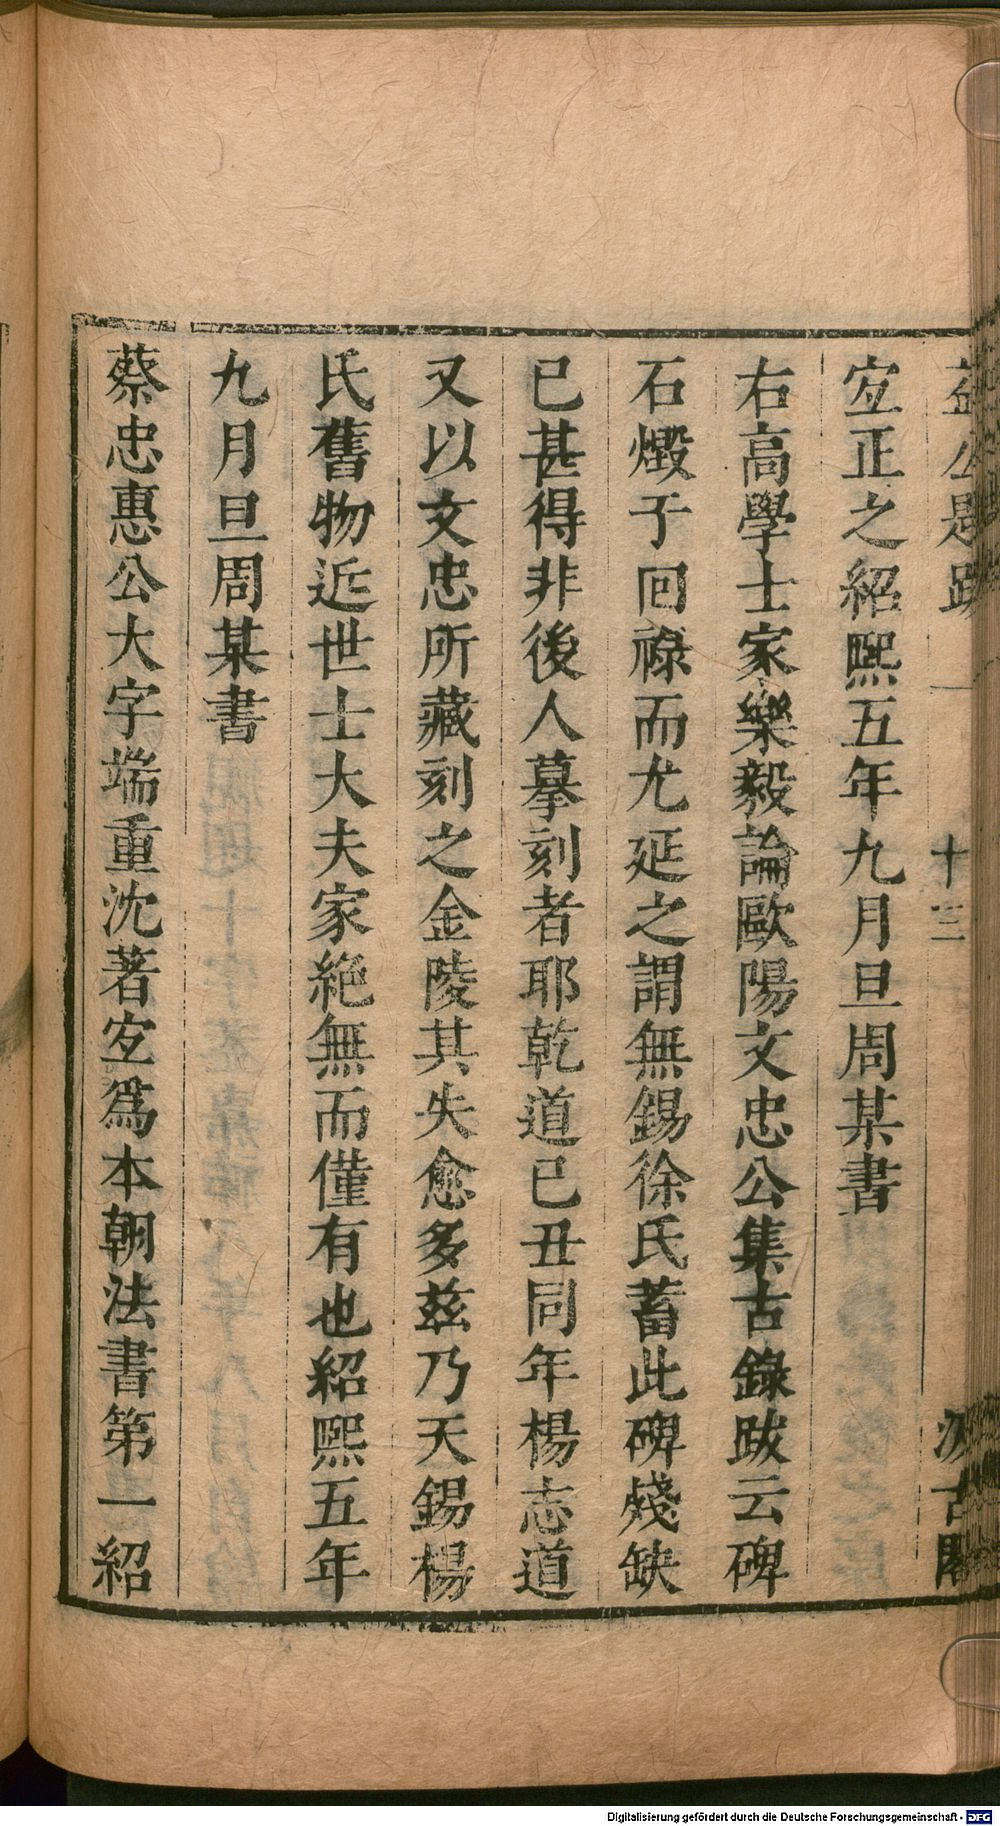 益公題跋 一 十三 汲古閣
宐正之紹熙五年九月旦周某書
右高學士家樂毅論歐陽文忠公集古錄跋云碑
石燬于回祿而尤延之謂無錫徐氏蓄此碑殘缺
已甚得非後人摹刻者耶乾道已丑同年楊志道
又以文忠所藏刻之金陵其失愈多玆乃天錫楊
氏舊物近世士大夫家絕無而僅有也紹熙五年
九月旦周某書
蔡忠惠公大字端重沈著宐爲本朝法書第一紹
Digitalisierung gefördert durch die Deutsche Forschungsgemeinschaft - DFG